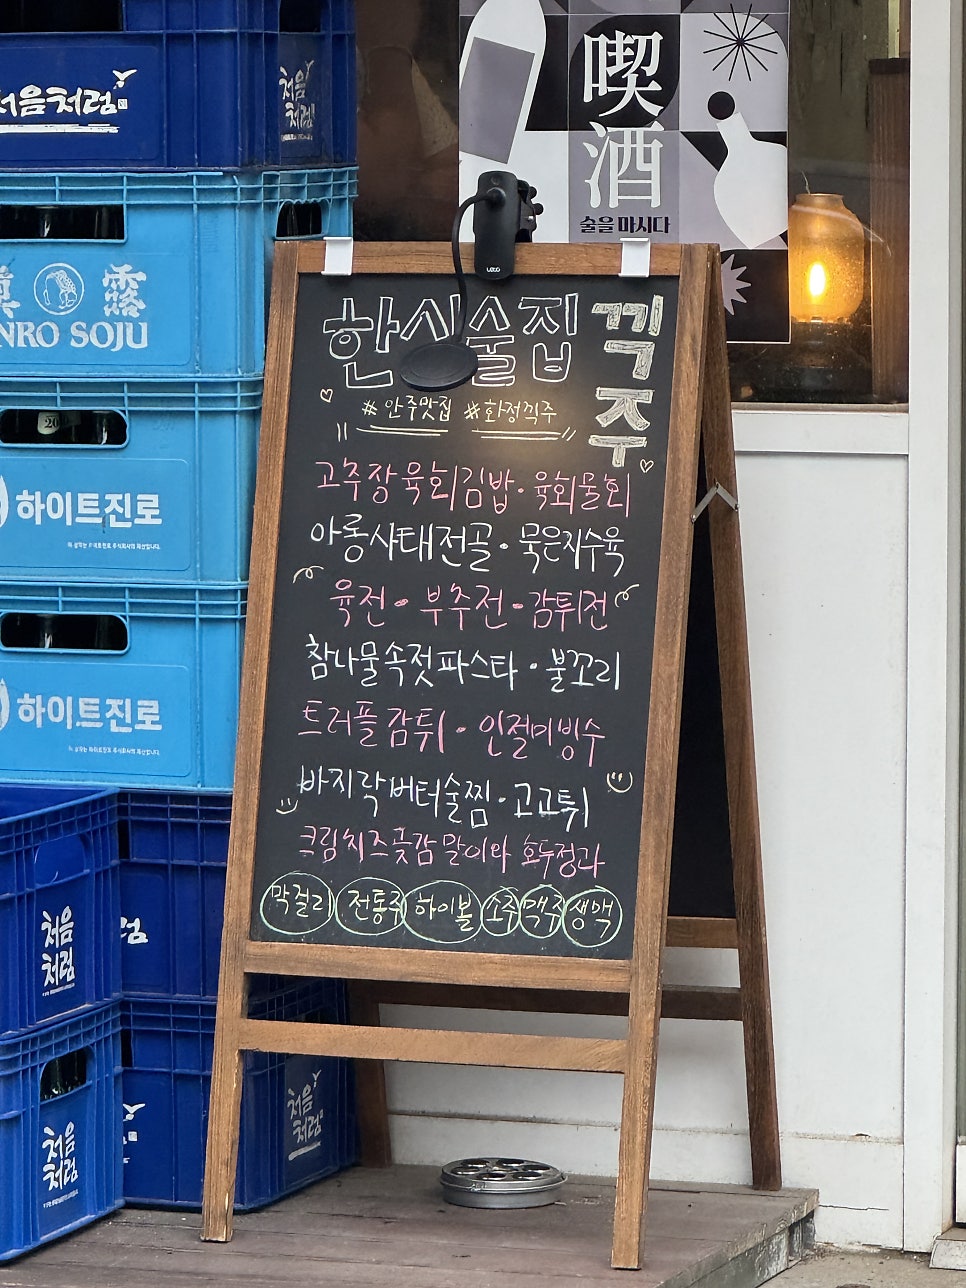 처음처럼
처음처럼
露
NRO SOJU
하이트진로
하이트진로
처음처럼
처음처럼
처음처럼
喫酒
술을 마시다
한식술집 끽주
#안주맛집 #화정끽주
고추장육회김밥·육회물회
아롱사태전골·묵은지수육
육전·부추전·감튀전
참나물속젓파스타·불꼬리
트러플감튀·인절미빙수
바지락버터술찜·고고튀
크림치즈곶감말이와 호두정과
막걸리 전통주 하이볼 소주 맥주 생맥